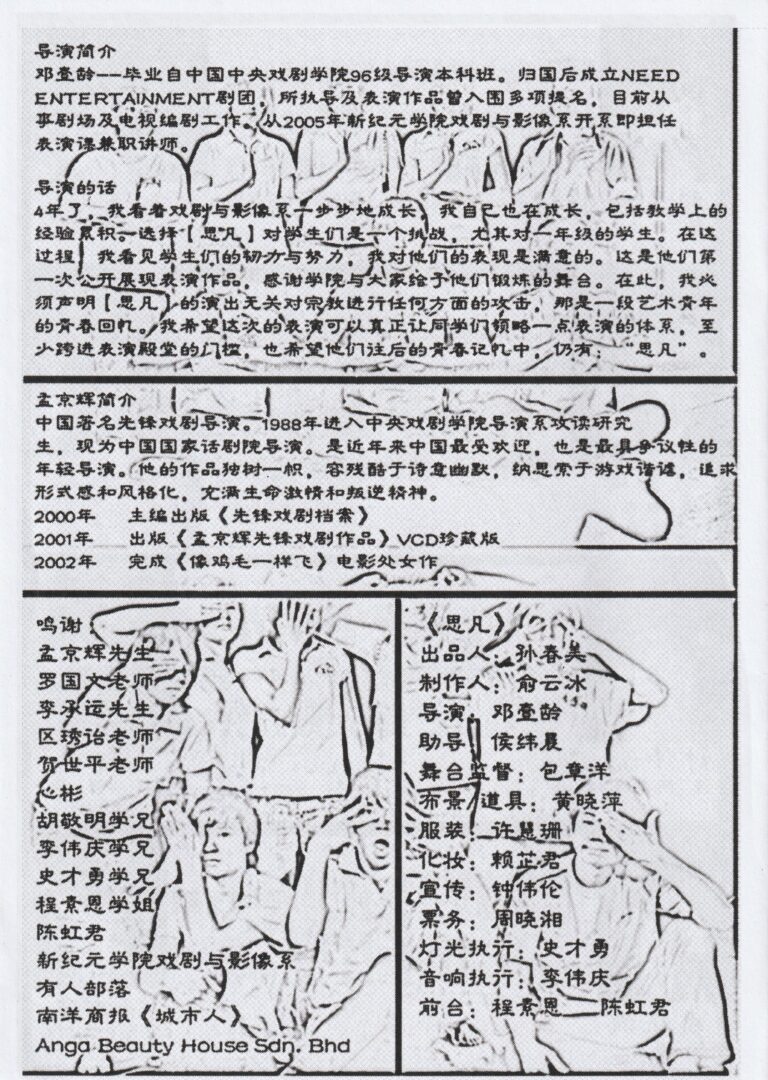 导演简介
邓壹龄--毕业自中国中央戏剧学院96级导演本科班。归国后成立NEED
ENTERTAINMENT剧团，所执导及表演作品曾入围多项提名，目前从
事剧场及电视编剧工作。从2005年新纪元学院戏剧与影像系开系即担任
表演课兼职讲师。
导演的话
4年了，我看着戏剧与影像系一步步地成长，我自己也在成长，包括教学上的
经验累积。选择【思凡】对学生们是一个挑战，尤其对一年级的学生。在这
过程，我看见学生们的韧力与努力，我对他们的表现是满意的。这是他们第
一次公开展现表演作品，感谢学院与大家给予他们锻炼的舞台。在此，我必
须声明【思凡】的演出无关对宗教进行任何方面的攻击，那是一段艺术青年
的青春回忆。我希望这次的表演可以真正让同学们领略一点表演的体系，至
少跨进表演殿堂的门槛，也希望他们往后的青春记忆中，仍有：“思凡”。
孟京辉简介
中国著名先锋戏剧导演。1988年进入中央戏剧学院导演系攻读研究
生，现为中国国家话剧院导演。是近年来中国最受欢迎，也是最具争议性的
年轻导演。他的作品独树一帜，容残酷于诗意幽默，纳思索于游戏谐谑，追求
形式感和风格化，充满生命激情和叛逆精神。
2000年 主编出版《先锋戏剧档案》
2001年 出版《孟京辉先锋戏剧作品》VCD珍藏版
2002年 完成《像鸡毛一样飞》电影处女作
鸣谢
孟京辉先生
罗国文老师
李承运先生
区琇诒老师
贺世平老师
心彬
胡敬明学兄
李伟庆学兄
史才勇学兄
程素恩学姐
陈虹君
新纪元学院戏剧与影像系
有人部落
南洋商报《城市人》
Anga Beauty House Sdn. Bhd
《思凡》
出品人：孙春美
制作人：俞云冰
导演：邓壹龄
助导：侯纬晨
舞台监督：包章洋
布景/道具：黄晓萍
服装：许慧珊
化妆：赖芷君
宣传：钟伟伦
票务：周晓湘
灯光执行：史才勇
音响执行：李伟庆
前台：程素恩 陈虹君